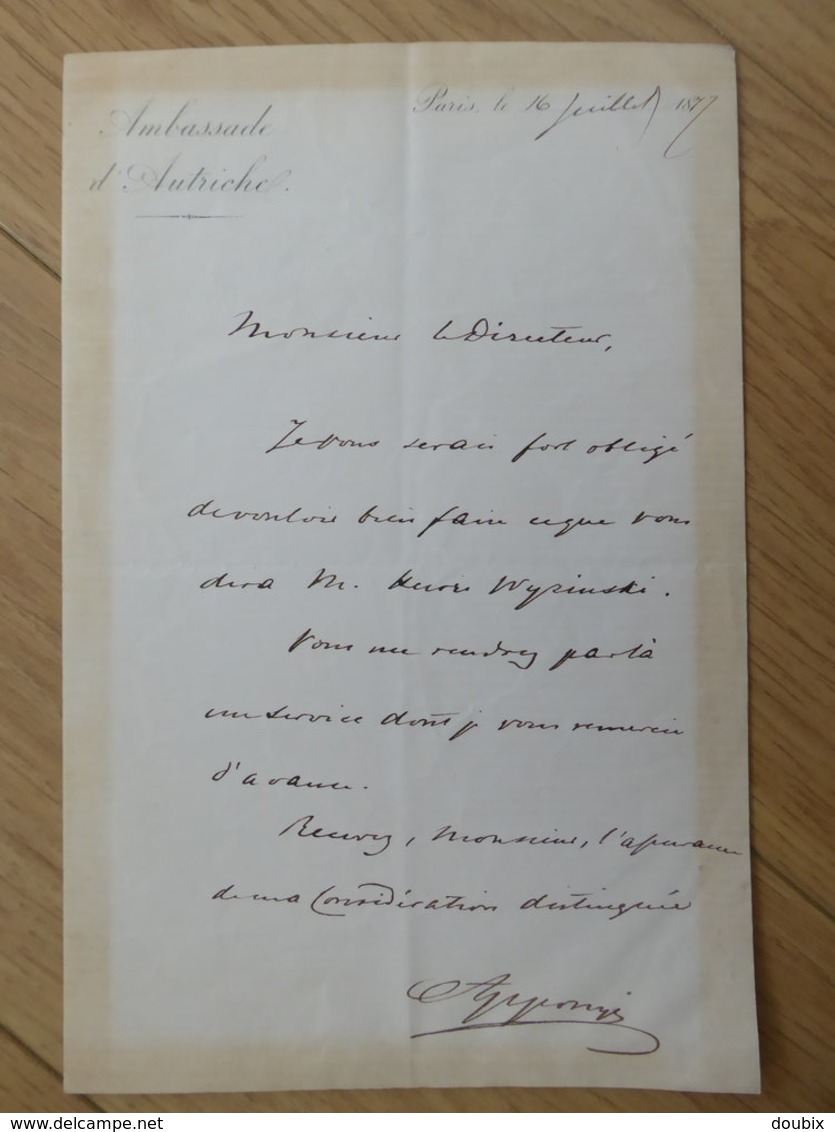 Ambassade
d'Autriche.
Paris, le 16 Juillet 1877
Monsieur le Directeur,
Je vous serais fort obligé
de vouloir bien faire ce que vous
dira M. Henri Wyzinski.
Vous me rendrez par là
un service dont je vous remercie
d'avance.
Recevez, Monsieur, l'assurance
de ma Considération distinguée
Apponyi
www.delcampe.net
doubix